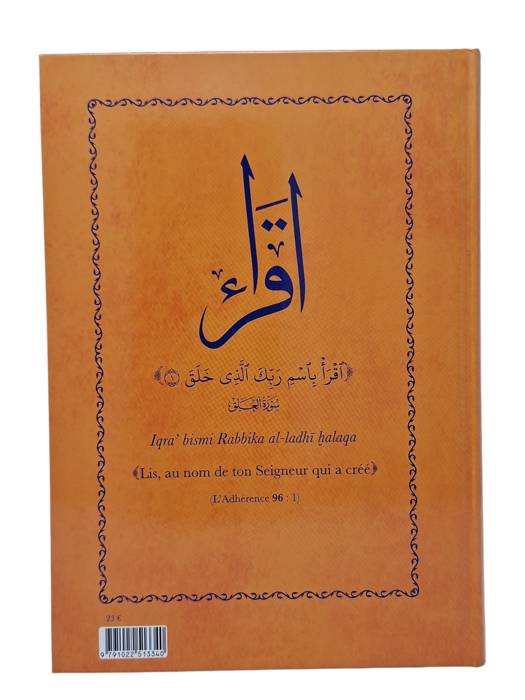 اقرأ
﴿ٱقْرَأْ بِٱسْمِ رَبِّكَ ٱلَّذِى خَلَقَ ١﴾
سُورَةُ العَلَقِ
Iqra' bismi Rabbika al-ladhî ḫalaqa
﴾Lis, au nom de ton Seigneur qui a créé﴿
(L'Adhérence 96 : 1)
23 €
9 791022 513340